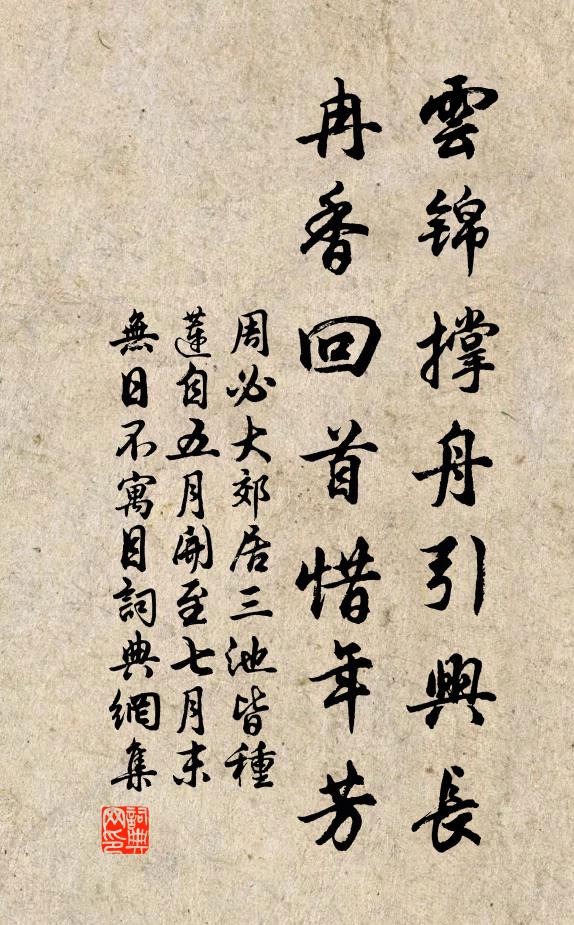 雲錦撑舟引興長
冉香回首惜年芳
周必大郊居三池皆種
蓮自五月開至七月末
無日不寓目詞典網集
詞典网印